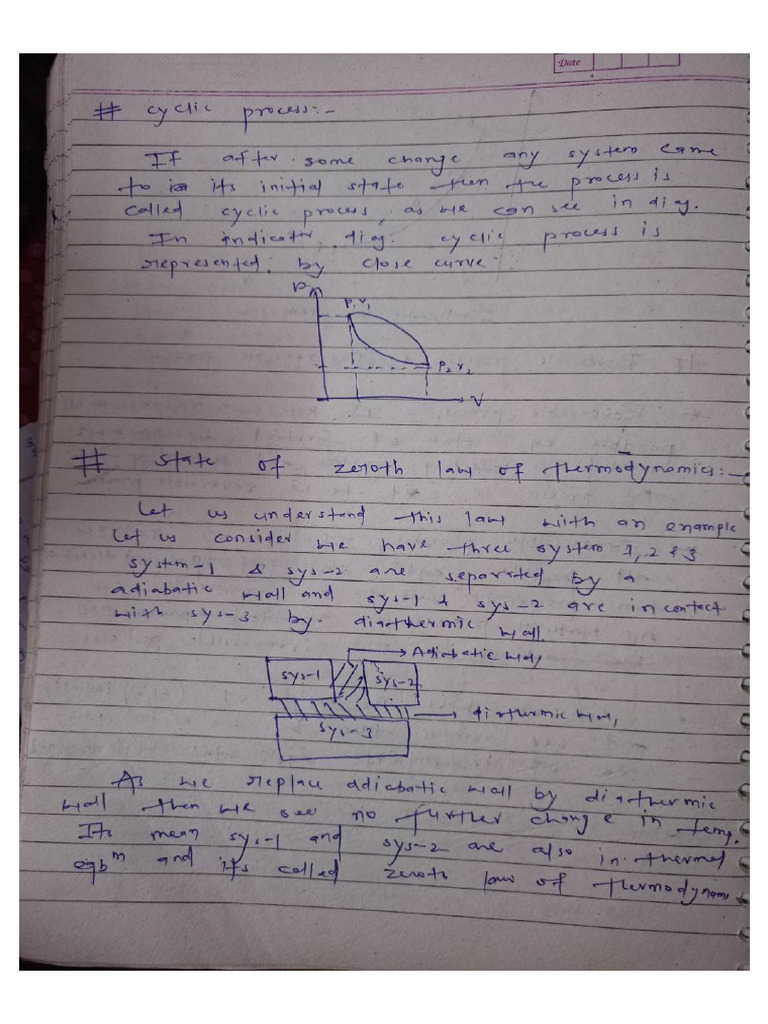 Date
# cyclic process:-
If after some change any system came
to is its initial state then the process is
called cyclic process, as we can see in diag.
In indicator diag. cyclic process is
represented by close curve.
P
P1 V1
P2 V2
V
# State of zeroth law of thermodynamics:-
Let us understand this law with an example
Let us consider we have three system 1, 2 & 3
system-1 & sys-2 are separated by a
adiabatic wall and sys-1 & sys-2 are in contact
with sys-3 by diathermic wall.
Adiabatic wall
sys-1
sys-2
diathermic wall
sys-3
As we replace adiabatic wall by diathermic
wall then we see no further change in temp.
Its mean sys-1 and sys-2 are also in thermal
eqbm and its called zeroth law of thermodynamics